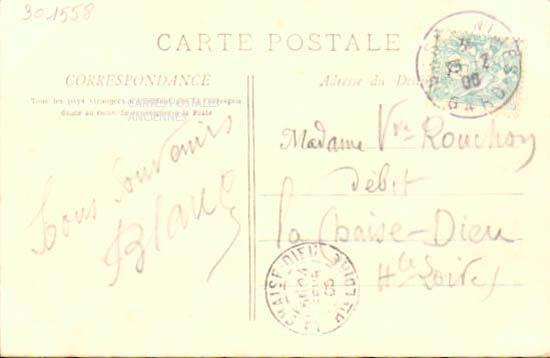 30.1558
CARTE POSTALE
CORRESPONDANCE
Tous les pays étrangers n'acceptent pas la correspondance
au recto. Se renseigner à la Poste
CARTES POSTALES
ANCIENNES
Adresse du
Bons Souvenirs
Blanc
Madame Vve Rouchon
débit
la Chaise-Dieu
Hte Loire
NIMES
GARD
06
LA CHAISE-DIEU
HTE LOIRE